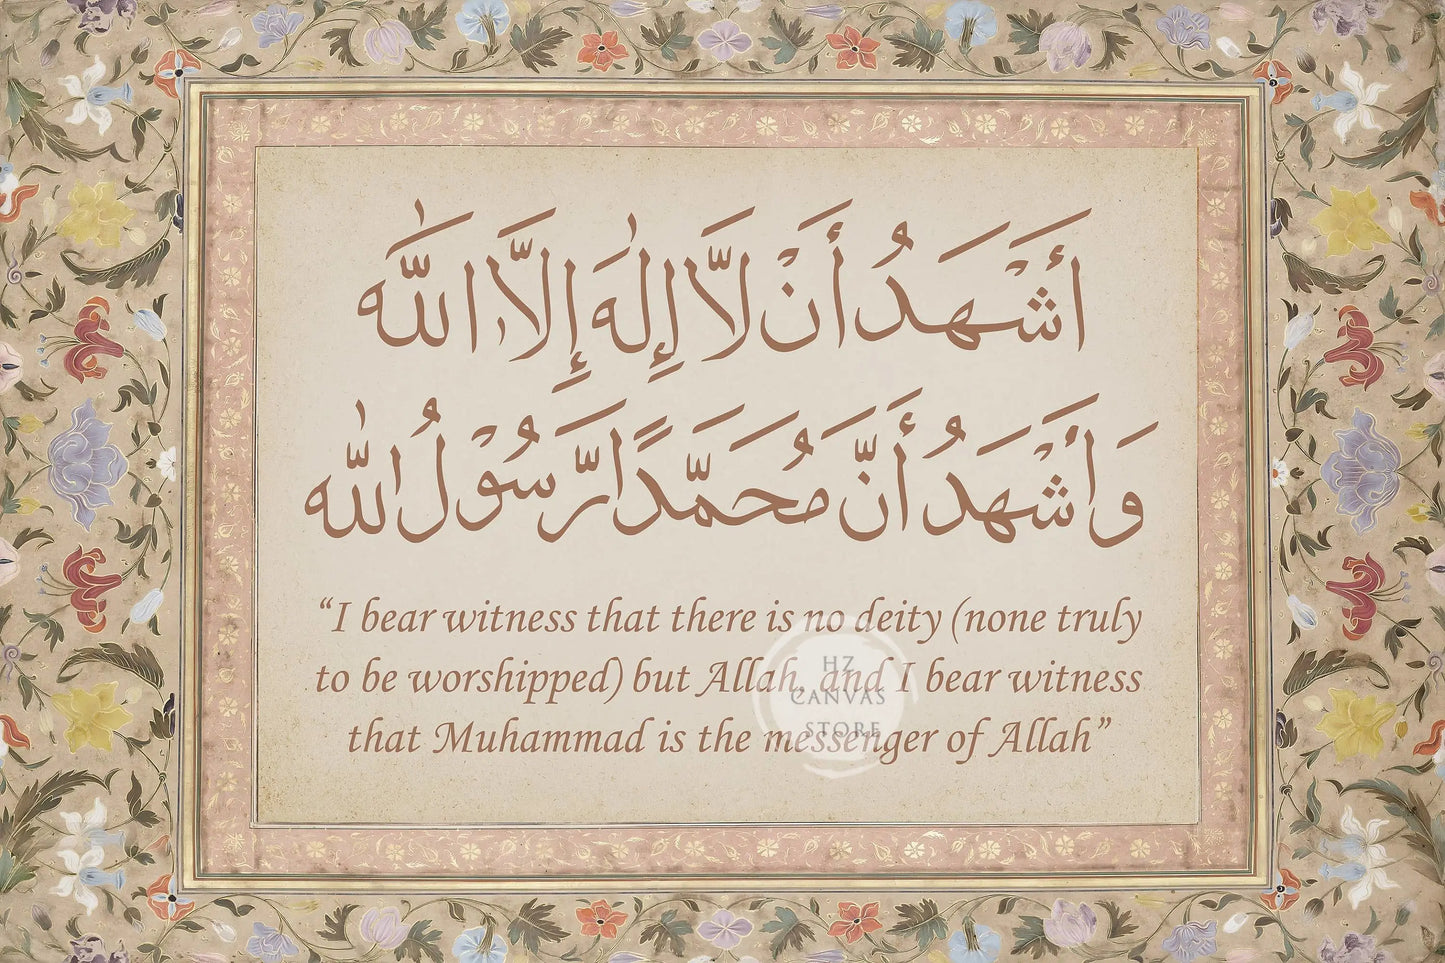 أَشْهَدُ أَنْ لَّا إِلٰهَ إِلَّا اللّٰه
وَأَشْهَدُ أَنَّ مُحَمَّدًا رَّسُوْلُ اللّٰه
“I bear witness that there is no deity (none truly
to be worshipped) but Allah, and I bear witness
that Muhammad is the messenger of Allah”
HZ
CANVAS
STORE